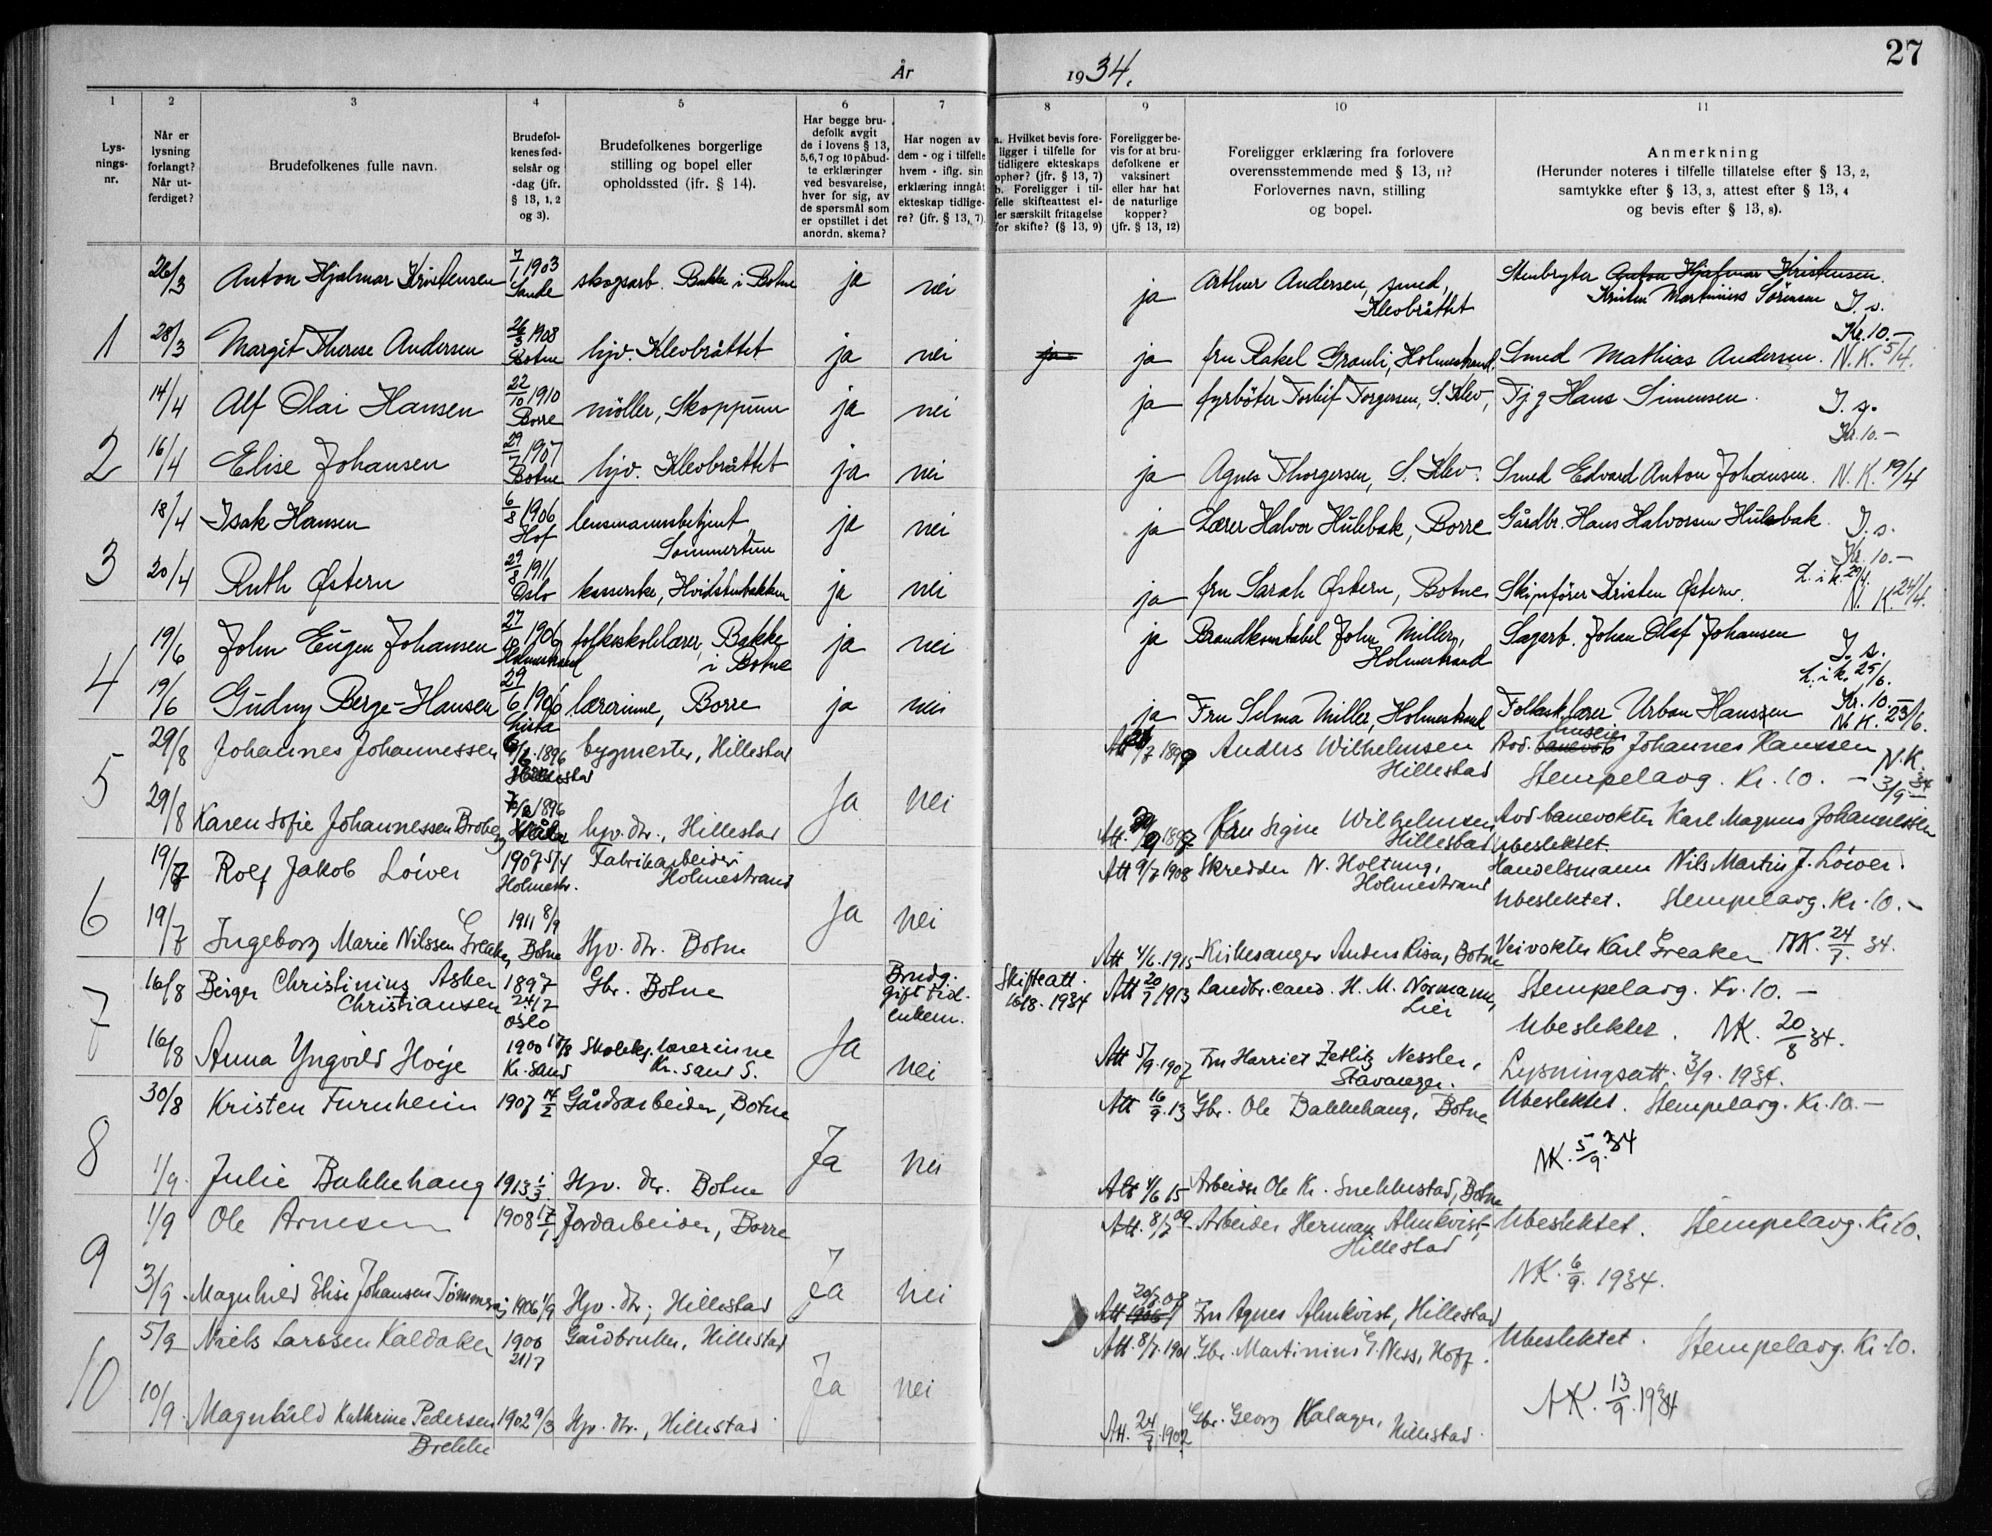 27
År
1934.
1
2
3
4
5
6
7
8
9
10
11
Lys-
nings-
nr.
Når er
lysning
forlangt?
Når ut-
ferdiget?
Brudefolkenes fulle navn.
Brudefol-
kenes fød-
selsår og
-dag (jfr.
§ 13, 1, 2
og 3).
Brudefolkenes borgerlige
stilling og bopel eller
opholdssted (ifr. § 14).
Har begge bru-
defolk avgit
de i lovens § 13,
5, 6, 7 og 10 påbud-
te erklæringer
ved besvarelse,
hver for sig, av
de spørsmål som
er opstillet i det
anordn. skema?
Har nogen av
dem - og i tilfelle
hvem - iflg. sin
erklæring inngåt
ekteskap tidlige-
re? (jfr. § 13, 7)
a. Hvilket bevis fore-
ligger i tilfelle for
tidligere ekteskaps
ophør? (jfr. § 13, 7)
b. Foreligger i til-
felle skifteattest el-
ler særskilt fritagelse
for skifte? (§ 13, 9)
Foreligger be-
vis for at bru-
defolkene er
vaksinert
eller har hat
de naturlige
kopper?
(jfr. § 13, 12)
Foreligger erklæring fra forlovere
overensstemmende med § 13, 11?
Forlovernes navn, stilling
og bopel.
Anmerkning
(Herunder noteres i tilfelle tillatelse efter § 13, 2,
samtykke efter § 13, 3, attest efter § 13, 4
og bevis efter § 13, 8).
26/3 Anton Hjalmar Kristensen 7/1 1903 Sande skogsarb. Bakke i Botne ja nei ja Arthur Andersen, smed, Klevbråttet Stenbryter Anton Hjalmar Kristensen
Kristen Martinius Sørensen I. s.
Kr. 10.-
1 28/3 Margit Therese Andersen 26/3 1908 Botne hjv. Klevbråttet ja nei ja ja fru Rakel Granli, Holmestrand. Smed Mathias Andersen. N. K. 5/4.
14/4 Alf Olai Hansen 22/10 1910 Borre møller, Skoppum ja nei ja fyrbøter Torleif Torgersen, S. Klev, Tjg Hans Simensen. I. s.
Kr. 10.-
2 16/4 Elise Johansen 29/7 1907 Botne hjv. Klevbråttet ja nei ja Agnes Thorgersen, S. Klev. Smed Edvard Anton Johansen. N. K. 19/4
18/4 Isak Hansen 6/8 1906 Hof lensmannsbetjent Sommertun ja nei ja Lærer Halvor Hulebak, Borre Gårdbr. Hans Halvorsen Hulebak. I. s.
Kr. 10.-
3 20/4 Ruth Østern 29/8 1911 Oslo kasserske, Hvidstenbakken ja nei ja fru Sarah Østern, Botne Skipsfører Kristen Østern. L. i k. 29/4.
N. K. 24/4.
19/6 John Eugen Johansen 27/12 1906 Holmestrand folkeskolelærer, Bakke i Botne ja nei ja Brandkonstabel John Miller, Holmestrand Sagarb. Johan Olaf Johansen I. s.
L. i k. 25/6.
4 19/6 Gudny Berge-Hansen 29/6 1906 Lista lærerinne, Borre ja nei ja Fru Selma Miller, Holmestrand Folkesk.lærer Urban Hanssen Kr. 10.-
N. K. 23/6.
29/8 Johannes Johannessen 1896 Hillestad bygmester, Hillestad Att 1899 Anders Wilhelmsen Hillestad Avd. banevokt Johannes Hanssen
Stempelavg. Kr. 10.- N.K. 3/9 34
5 Ja nei
29/8 Karen Sofie Johannessen Broberg 1896 Våle hjv. dtr., Hillestad Att. 1897 Fru Signe Wilhelmsen Hillestad Avd banevokter Karl Magnus Johannessen
Ubeslektet.
19/7 Rolf Jakob Löwer 1907 5/4 Holmestr. Fabrikarbeider Holmestrand Att 9/7 1908 Skredder N. Holtung, Holmestrand Handelsmann Nils Martin J. Löwer.
Ubeslektet. Stempelavg. Kr. 10.-
6 Ja nei
19/7 Ingeborg Marie Nilssen Greaker 1911 8/9 Botne Hjv. dtr. Botne Att 4/6. 1915 Kirkesanger Anders Risa, Botne Veivokter Karl Greaker NK. 24/7. 34.
16/8 Birger Christinius Asker Christiansen 1897 24/7 Oslo Gbr. Botne Brudg. gift tid- Skifteatt. 16/8. 1934 Att 20/7 1913 Landbr. cand. H. M. Normann, Lier Stempelavg. Kr. 10.-
Ubeslektet. NK. 20/8 34.
7 Ja
16/8 Anna Yngvild Höije 1900 17/8 Kr. sand Skolekj. lærerinne Kr. sand S. nei Att 5/9. 1907 Fru Harriet Zetlitz Nessler, Stavanger. Lysningsatt. 3/9. 1934.
30/8 Kristen Furuheim 1907 14/2 Gårdsarbeider, Botne Att 16/9. 13 Gbr. Ole Bakkehaug, Botne Ubeslektet. Stempelavg. Kr. 10.-
8 Ja nei NK. 5/9. 34
1/9. Julie Bakkehaug 1913 1/3. Hjv. dtr. Botne Att 4/6 15 Arbeider Ole Kr. Snekkestad, Botne
1/9 Ole Arnesen 1908 17/1 Jordarbeider, Borre Att. 8/7 09. Arbeider Herman Almkvist, Hillestad Ubeslektet. Stempelavg. Kr 10.
9 Ja nei NK. 6/9. 1934.
3/9. Magnhild Elise Johansen 1906 1/9 Hjv. dtr; Hillestad Att 20/7 07 Fru Agnes Almkvist, Hillestad
5/9 Niels Larssen Kaldaker 1900 21/7 Gårdbruker, Hillestad Att. 8/7. 1901 Gbr. Martinius E. Ness, Hoff. Ubeslektet. Stempelavg. Kr 10.
10 Ja nei NK. 13/9. 1934
10/9. Magnhild Kathrine Pedersen Brekke 1902 9/3 Hjv. dtr., Hillestad Att. 24/8. 1902 Gbr. Georg Kalager, Hillestad.